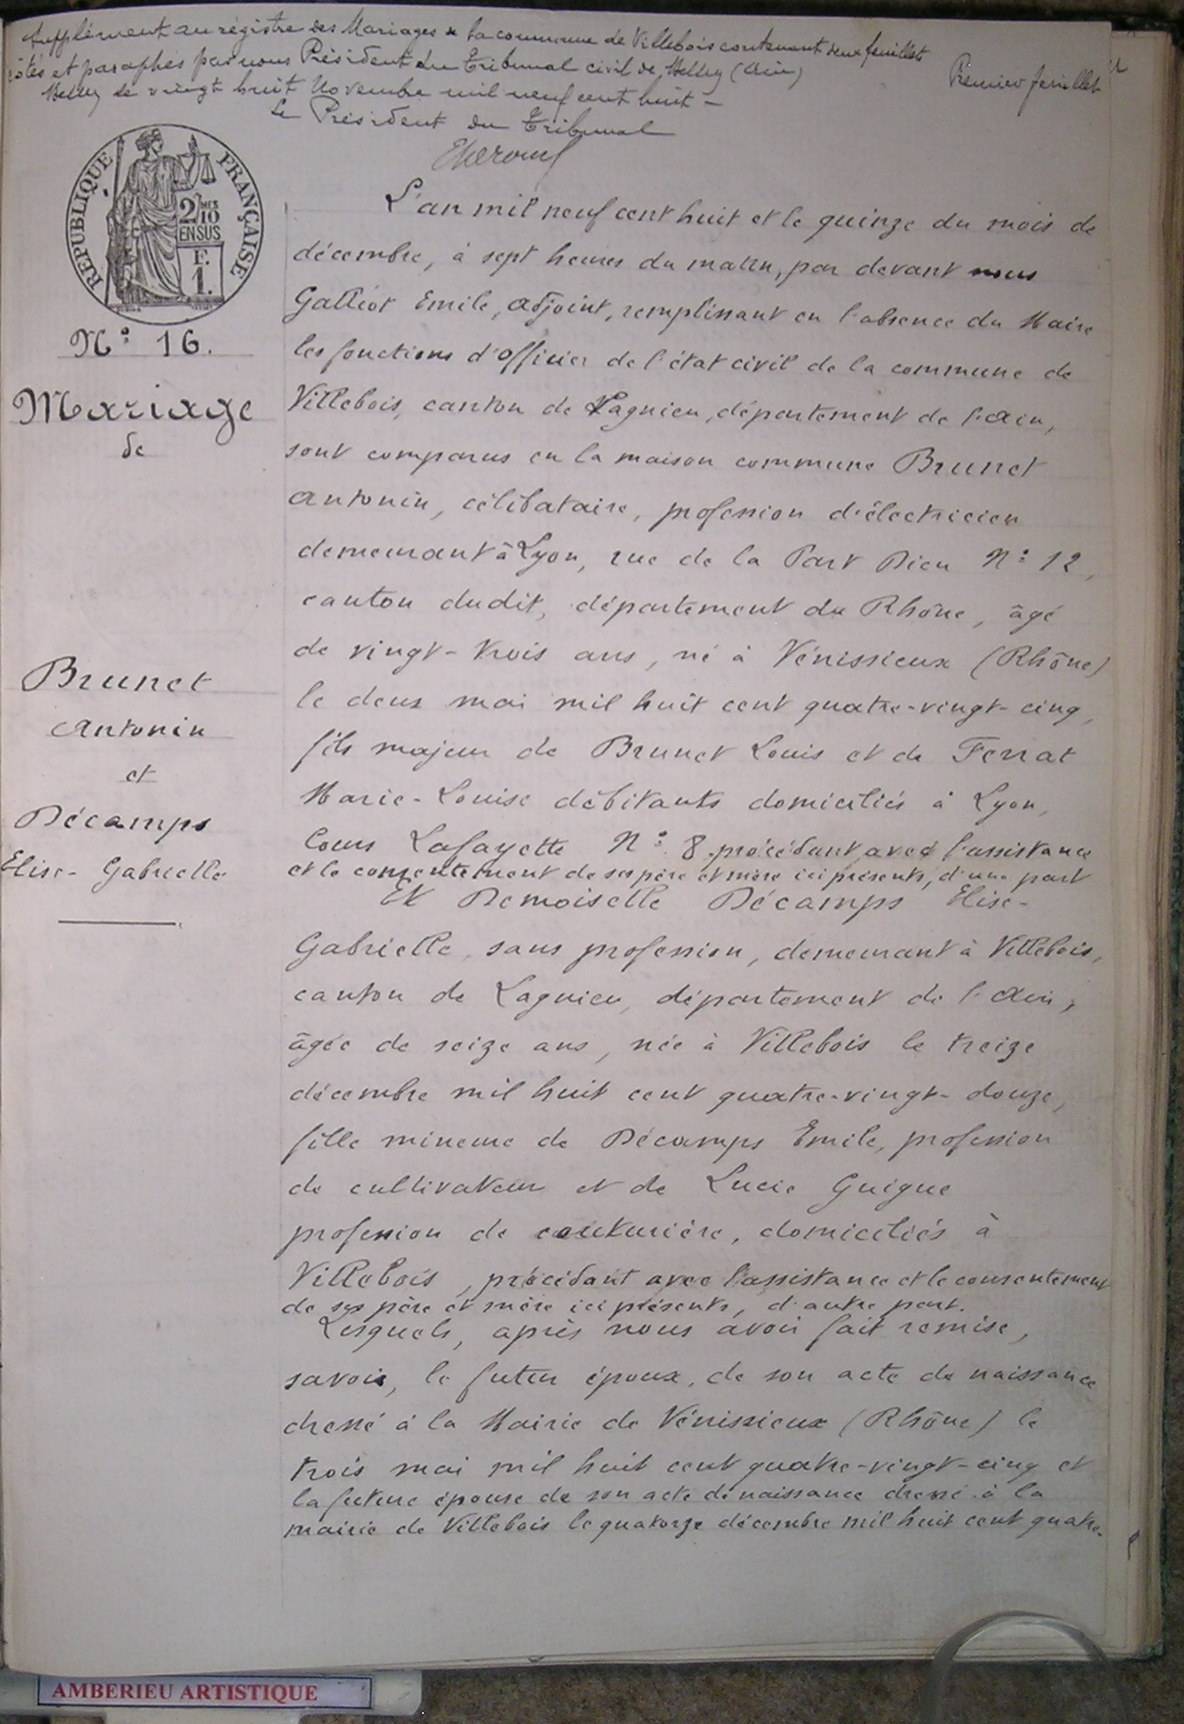 Supplément au régistre des Mariages de la commune de Villebois contenant deux feuillets
côtés et paraphés par nous Président du Tribunal civil de Belley (Ain)
Premier feuillet
Belley le vingt huit Novembre mil neuf cent huit -
Le Président du Tribunal
RÉPUBLIQUE FRANÇAISE
2/10 MES
EN SUS
F.
1.
N° 16.
Mariage
de
Brunet
Antonin
et
Décamps
Elise-Gabrielle
L'an mil neuf cent huit et le quinze du mois de
décembre, à sept heures du matin, par devant nous
Galliot Emile, adjoint, remplissant en l'absence du Maire
les fonctions d'officier de l'état civil de la commune de
Villebois, canton de Lagnieu, département de l'Ain,
sont comparus en la maison commune Brunet
Antonin, célibataire, profession d'électricien
demeurant à Lyon, rue de la Part Dieu N° 12,
canton dudit, département du Rhône, âgé
de vingt-trois ans, né à Vénissieux (Rhône)
le deux mai mil huit cent quatre-vingt-cinq,
fils majeur de Brunet Louis et de Ferrat
Marie-Louise débitants domiciliés à Lyon,
Cours Lafayette N° 8 procédant avec l'assistance
et le consentement de ses père et mère ici présents, d'une part
Et Demoiselle Décamps Elise-
Gabrielle, sans profession, demeurant à Villebois,
canton de Lagnieu, département de l'Ain,
âgée de seize ans, née à Villebois le treize
décembre mil huit cent quatre-vingt-douze,
fille mineure de Décamps Emile, profession
de cultivateur et de Lucie Guigue
profession de couturière, domiciliés à
Villebois, procédant avec l'assistance et le consentement
de ses père et mère ici présents, d'autre part.
Lesquels, après nous avoir fait remise,
savoir, le futur époux, de son acte de naissance
dressé à la Mairie de Vénissieux (Rhône) le
trois mai mil huit cent quatre-vingt-cinq et
la future épouse de son acte de naissance dressé à la
mairie de Villebois le quatorze décembre mil huit cent quatre-
AMBERIEU ARTISTIQUE